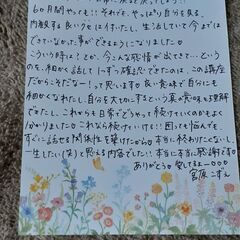 6ヶ月間やっても!! それで、やっぱり自分を見る、
内観する良いクセに付いたし、生活していて今まで
できていなかった事ができるようになりました♡
こういう時は?とか、今こんな感情が出てきて…という
のを、細かく話して1つずつ確認できたのは、この講座
だからこそだなー!って思います。良い意味で自分にも
細かくなれたし、自分を大切にするという真の意味も理解
できたし、これからも日常でどうやって続けていくのかもよく
分かりました♡これなら続けていける!!困っても悩んでも、
すぐに話せる関係性を築けたから♡本当に終わりたくないし、
一生したい(笑)と思える内容でした!!本当に本当に感謝です♡
ありがとう♡愛してるよー♡♡♡
宮原 こずえ